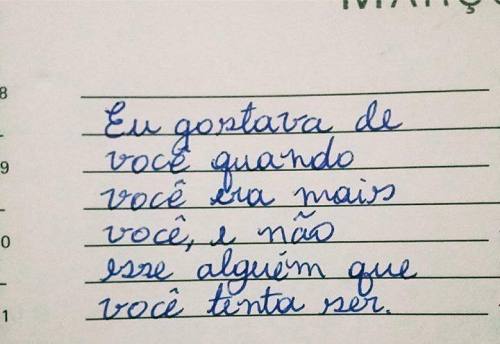 8
9
0
1
Eu gostava de
você quando
você era mais
você, e não
esse alguém que
você tenta ser.